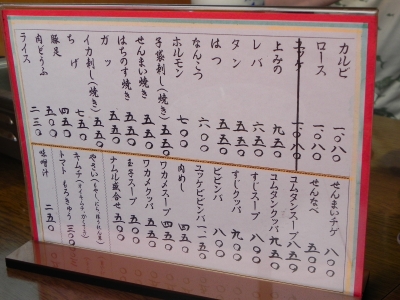 カルビ 一〇八〇
ロース 一〇八〇
ユッケ 一〇八〇
上みの 九五〇
レバ 六五〇
タン 五五〇
はつ 五五〇
なんこつ 六〇〇
ホルモン 七〇〇
子袋刺し(焼き) 五五〇
せんまい焼き 五五〇
はちのす焼き 五五〇
ガツ 五五〇
イカ刺し(焼き) 七五〇
ちげ 四五〇
豚足 五五〇
肉どうふ 五五〇
ライス 二三〇
せんまいチゲ 八〇〇
せんなべ 五〇〇
コムタンスープ 八五〇
コムタンクッパ 九五〇
すじスープ 八〇〇
すじクッパ 九〇〇
ビビンバ 八〇〇
ユッケビビンバ 一一五〇
肉わん 四五〇
ワカメスープ 四五〇
ワカメクッパ 五五〇
玉子スープ 五五〇
ナムル盛合せ 五五〇
やさい
キムチ
トマト もろきゅう 三〇〇
味噌汁 二五〇